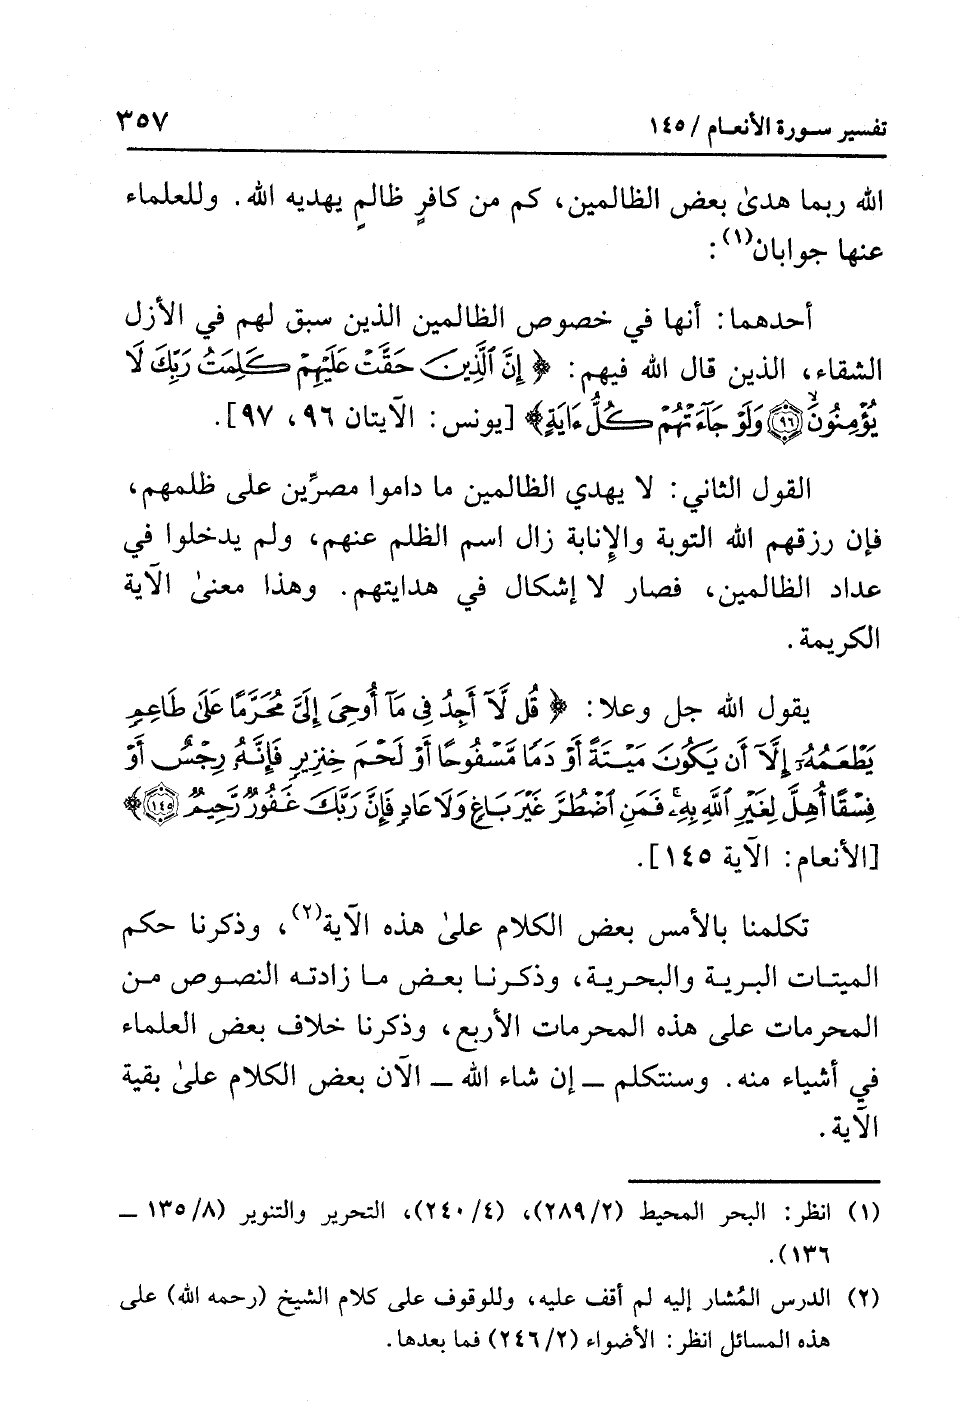 تفسير سورة الأنعام / ١٤٥ ٣٥٧
الله ربما هدىٰ بعض الظالمين، كم من كافرٍ ظالمٍ يهديه الله. وللعلماء
عنها جوابان(١):
أحدهما: أنها في خصوص الظالمين الذين سبق لهم في الأزل
الشقاء، الذين قال الله فيهم: ﴿ إِنَّ ٱلَّذِينَ حَقَّتْ عَلَيْهِمْ كَلِمَتُ رَبِّكَ لَا
يُؤْمِنُونَ ۙ ۝٩٦ وَلَوْ جَآءَتْهُمْ كُلُّ ءَايَةٍ ﴾ [يونس: الآيتان ٩٦، ٩٧].
القول الثاني: لا يهدي الظالمين ما داموا مصرِّين على ظلمهم،
فإن رزقهم الله التوبة والإنابة زال اسم الظلم عنهم، ولم يدخلوا في
عداد الظالمين، فصار لا إشكال في هدايتهم. وهذا معنىٰ الآية
الكريمة.
يقول الله جل وعلا: ﴿ قُل لَّآ أَجِدُ فِى مَآ أُوحِىَ إِلَىَّ مُحَرَّمًا عَلَىٰ طَاعِمٍ
يَطْعَمُهُۥٓ إِلَّآ أَن يَكُونَ مَيْتَةً أَوْ دَمًا مَّسْفُوحًا أَوْ لَحْمَ خِنزِيرٍ فَإِنَّهُۥ رِجْسٌ أَوْ
فِسْقًا أُهِلَّ لِغَيْرِ ٱللَّهِ بِهِۦ ۚ فَمَنِ ٱضْطُرَّ غَيْرَ بَاغٍ وَلَا عَادٍ فَإِنَّ رَبَّكَ غَفُورٌ رَّحِيمٌ ۝١٤٥ ﴾
[الأنعام: الآية ١٤٥].
تكلمنا بالأمس بعض الكلام علىٰ هذه الآية(٢)، وذكرنا حكم
الميتات البرية والبحرية، وذكرنا بعض ما زادته النصوص من
المحرمات على هذه المحرمات الأربع، وذكرنا خلاف بعض العلماء
في أشياء منه. وسنتكلم ـ إن شاء الله ـ الآن بعض الكلام علىٰ بقية
الآية.
(١) انظر: البحر المحيط (٢/٢٨٩)، (٤/٢٤٠)، التحرير والتنوير (٨/١٣٥ ـ
١٣٦).
(٢) الدرس المُشار إليه لم أقف عليه، وللوقوف على كلام الشيخ (رحمه الله) على
هذه المسائل انظر: الأضواء (٢/٢٤٦) فما بعدها.